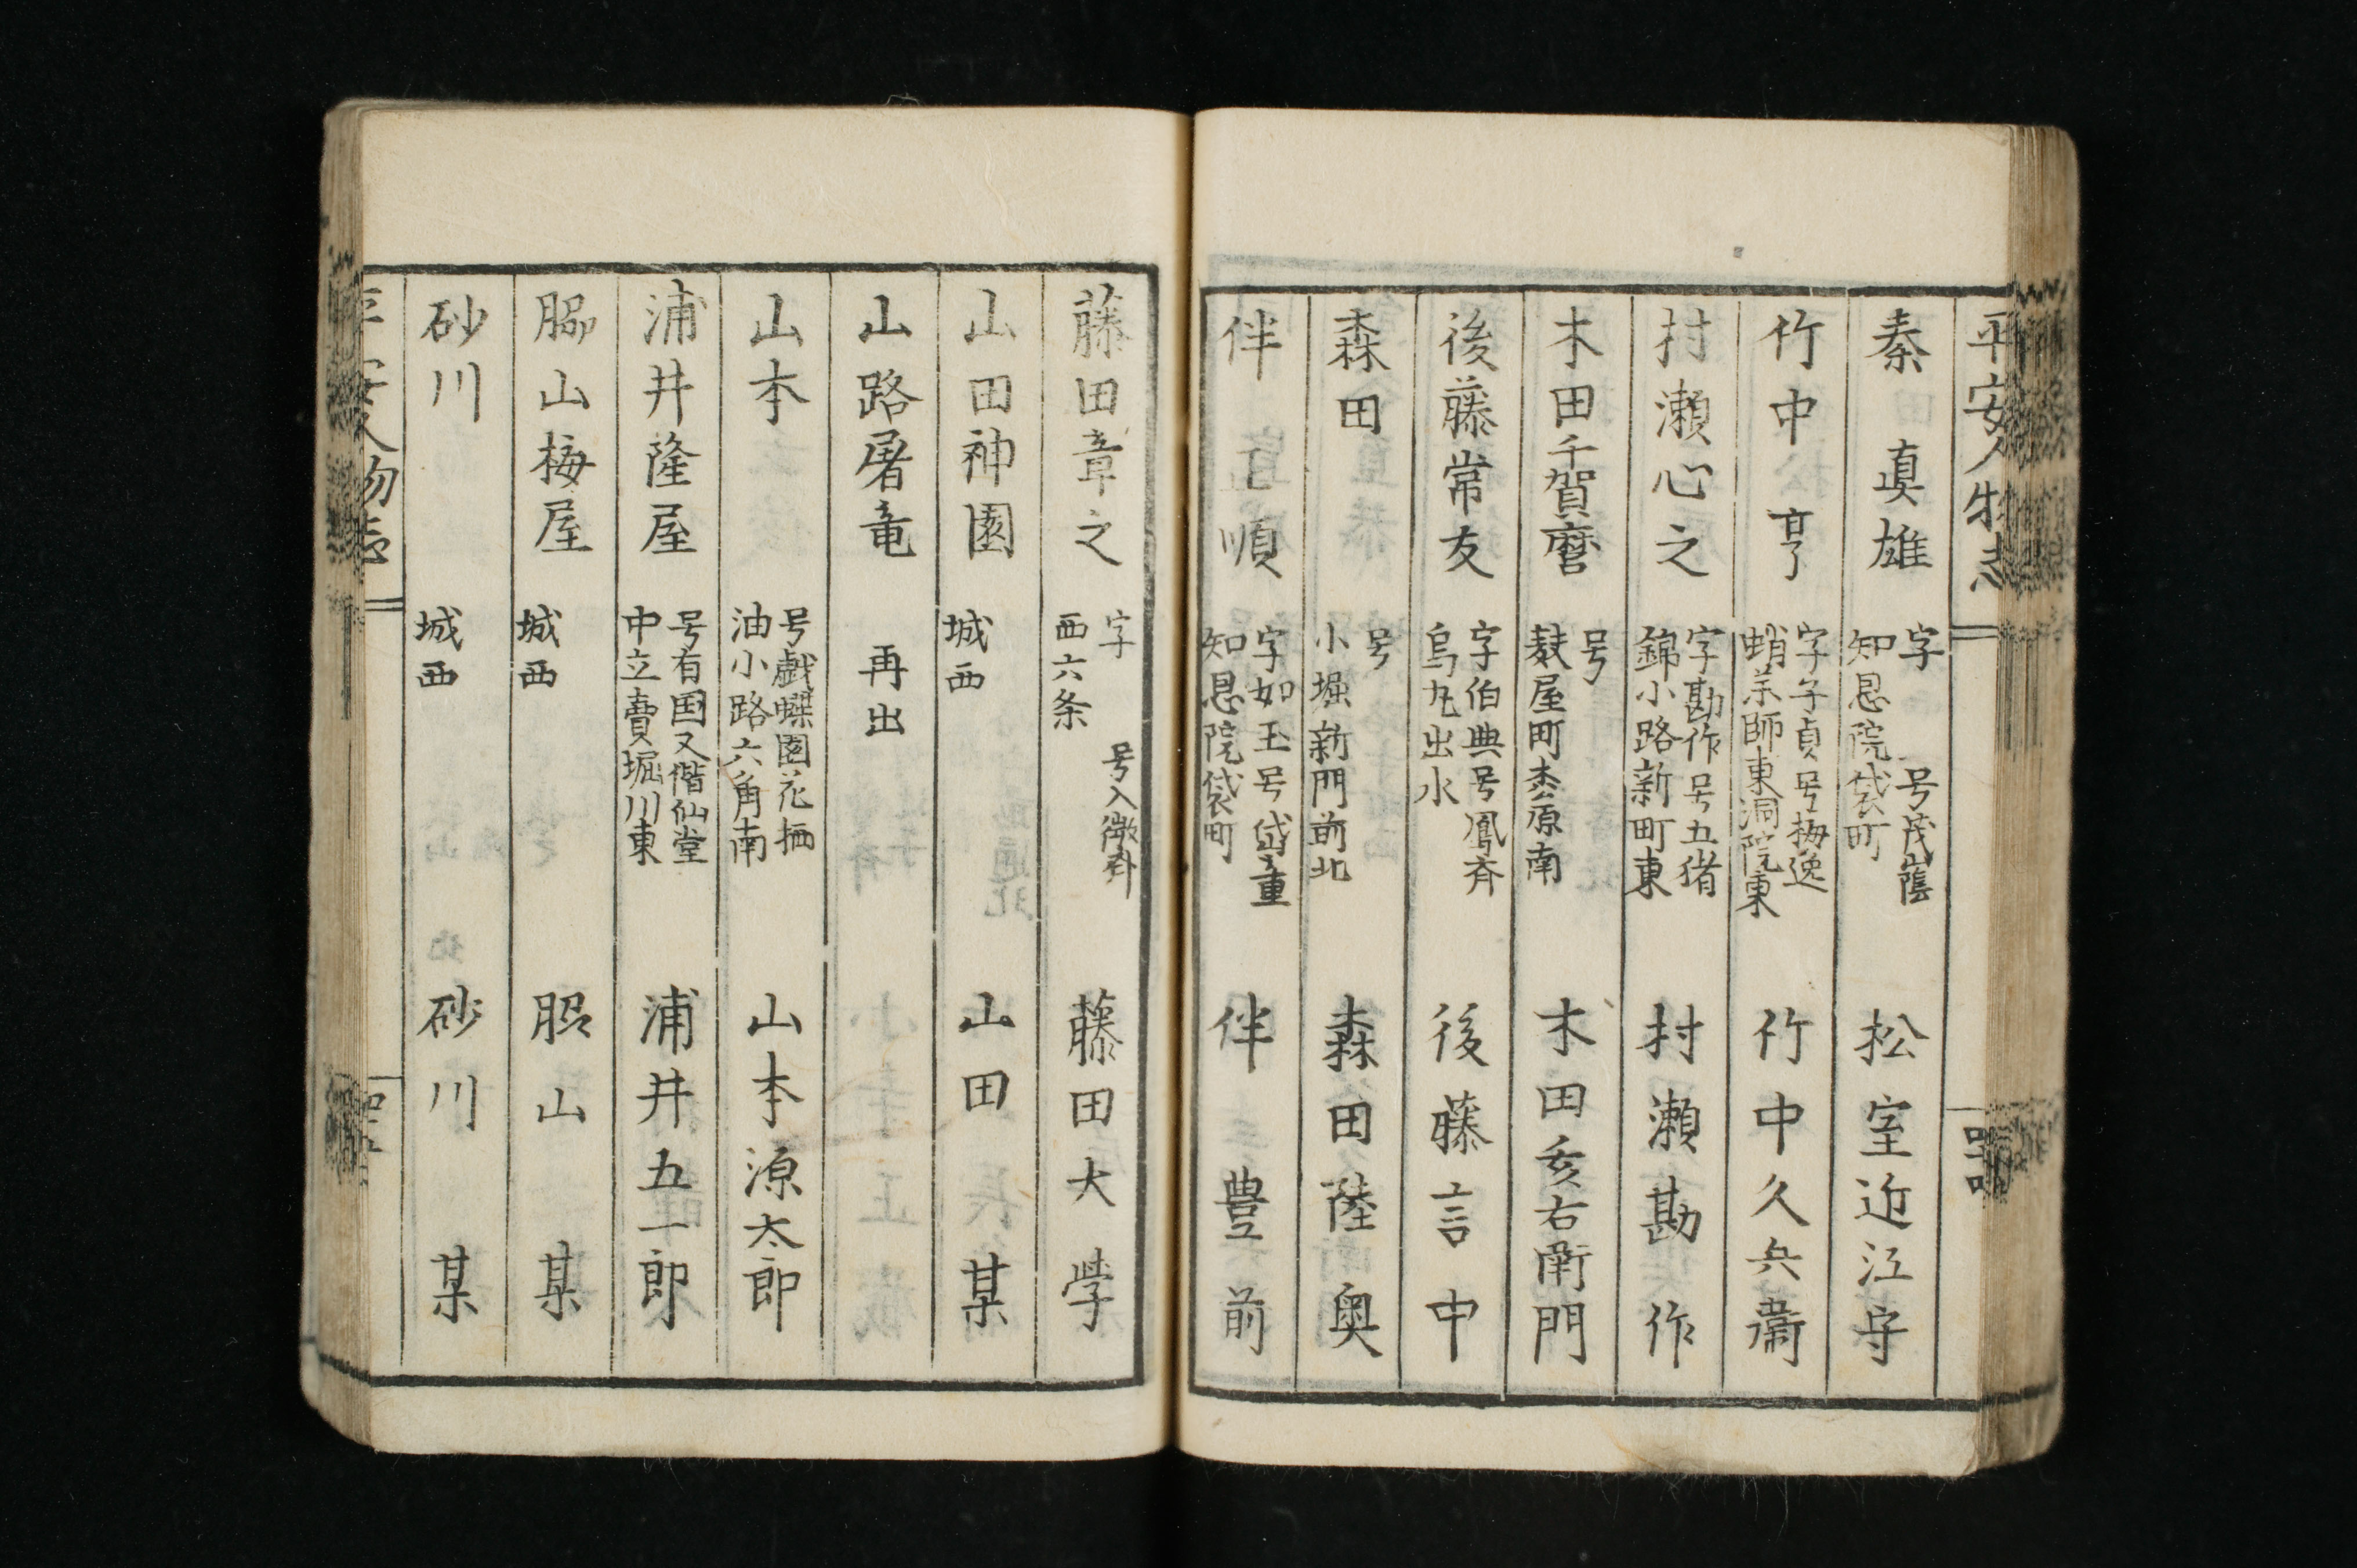 平安人物志
秦　真雄　字　号茂蔭　知恩院袋町　松室近江守
竹中　亨　字子貞号梅逸　蛸薬師東洞院東　竹中久兵衛
村瀬心之　字勘作号五猪　錦小路新町東　村瀬勘作
木田千賀麿　号　麸屋町枩原南　木田亥右衛門
後藤常友　字伯典号鳳斉　烏丸出水　後藤言中
森田　号　小堀新門前北　森田陸奥
伴　順　字如玉号岱重　知恩院袋町　伴　豊前
藤田章之　字　号入微斎　西六条　藤田大学
山田神園　城西　山田　某
山路屠竜　再出
山本　号戯蝶園花栖　油小路六角南　山本源太郎
浦井隆屋　号有国又偕仙堂　中立賣堀川東　浦井五一郎
脇山梅屋　城西　脇山　某
砂川　城西　砂川　某
平安人物志